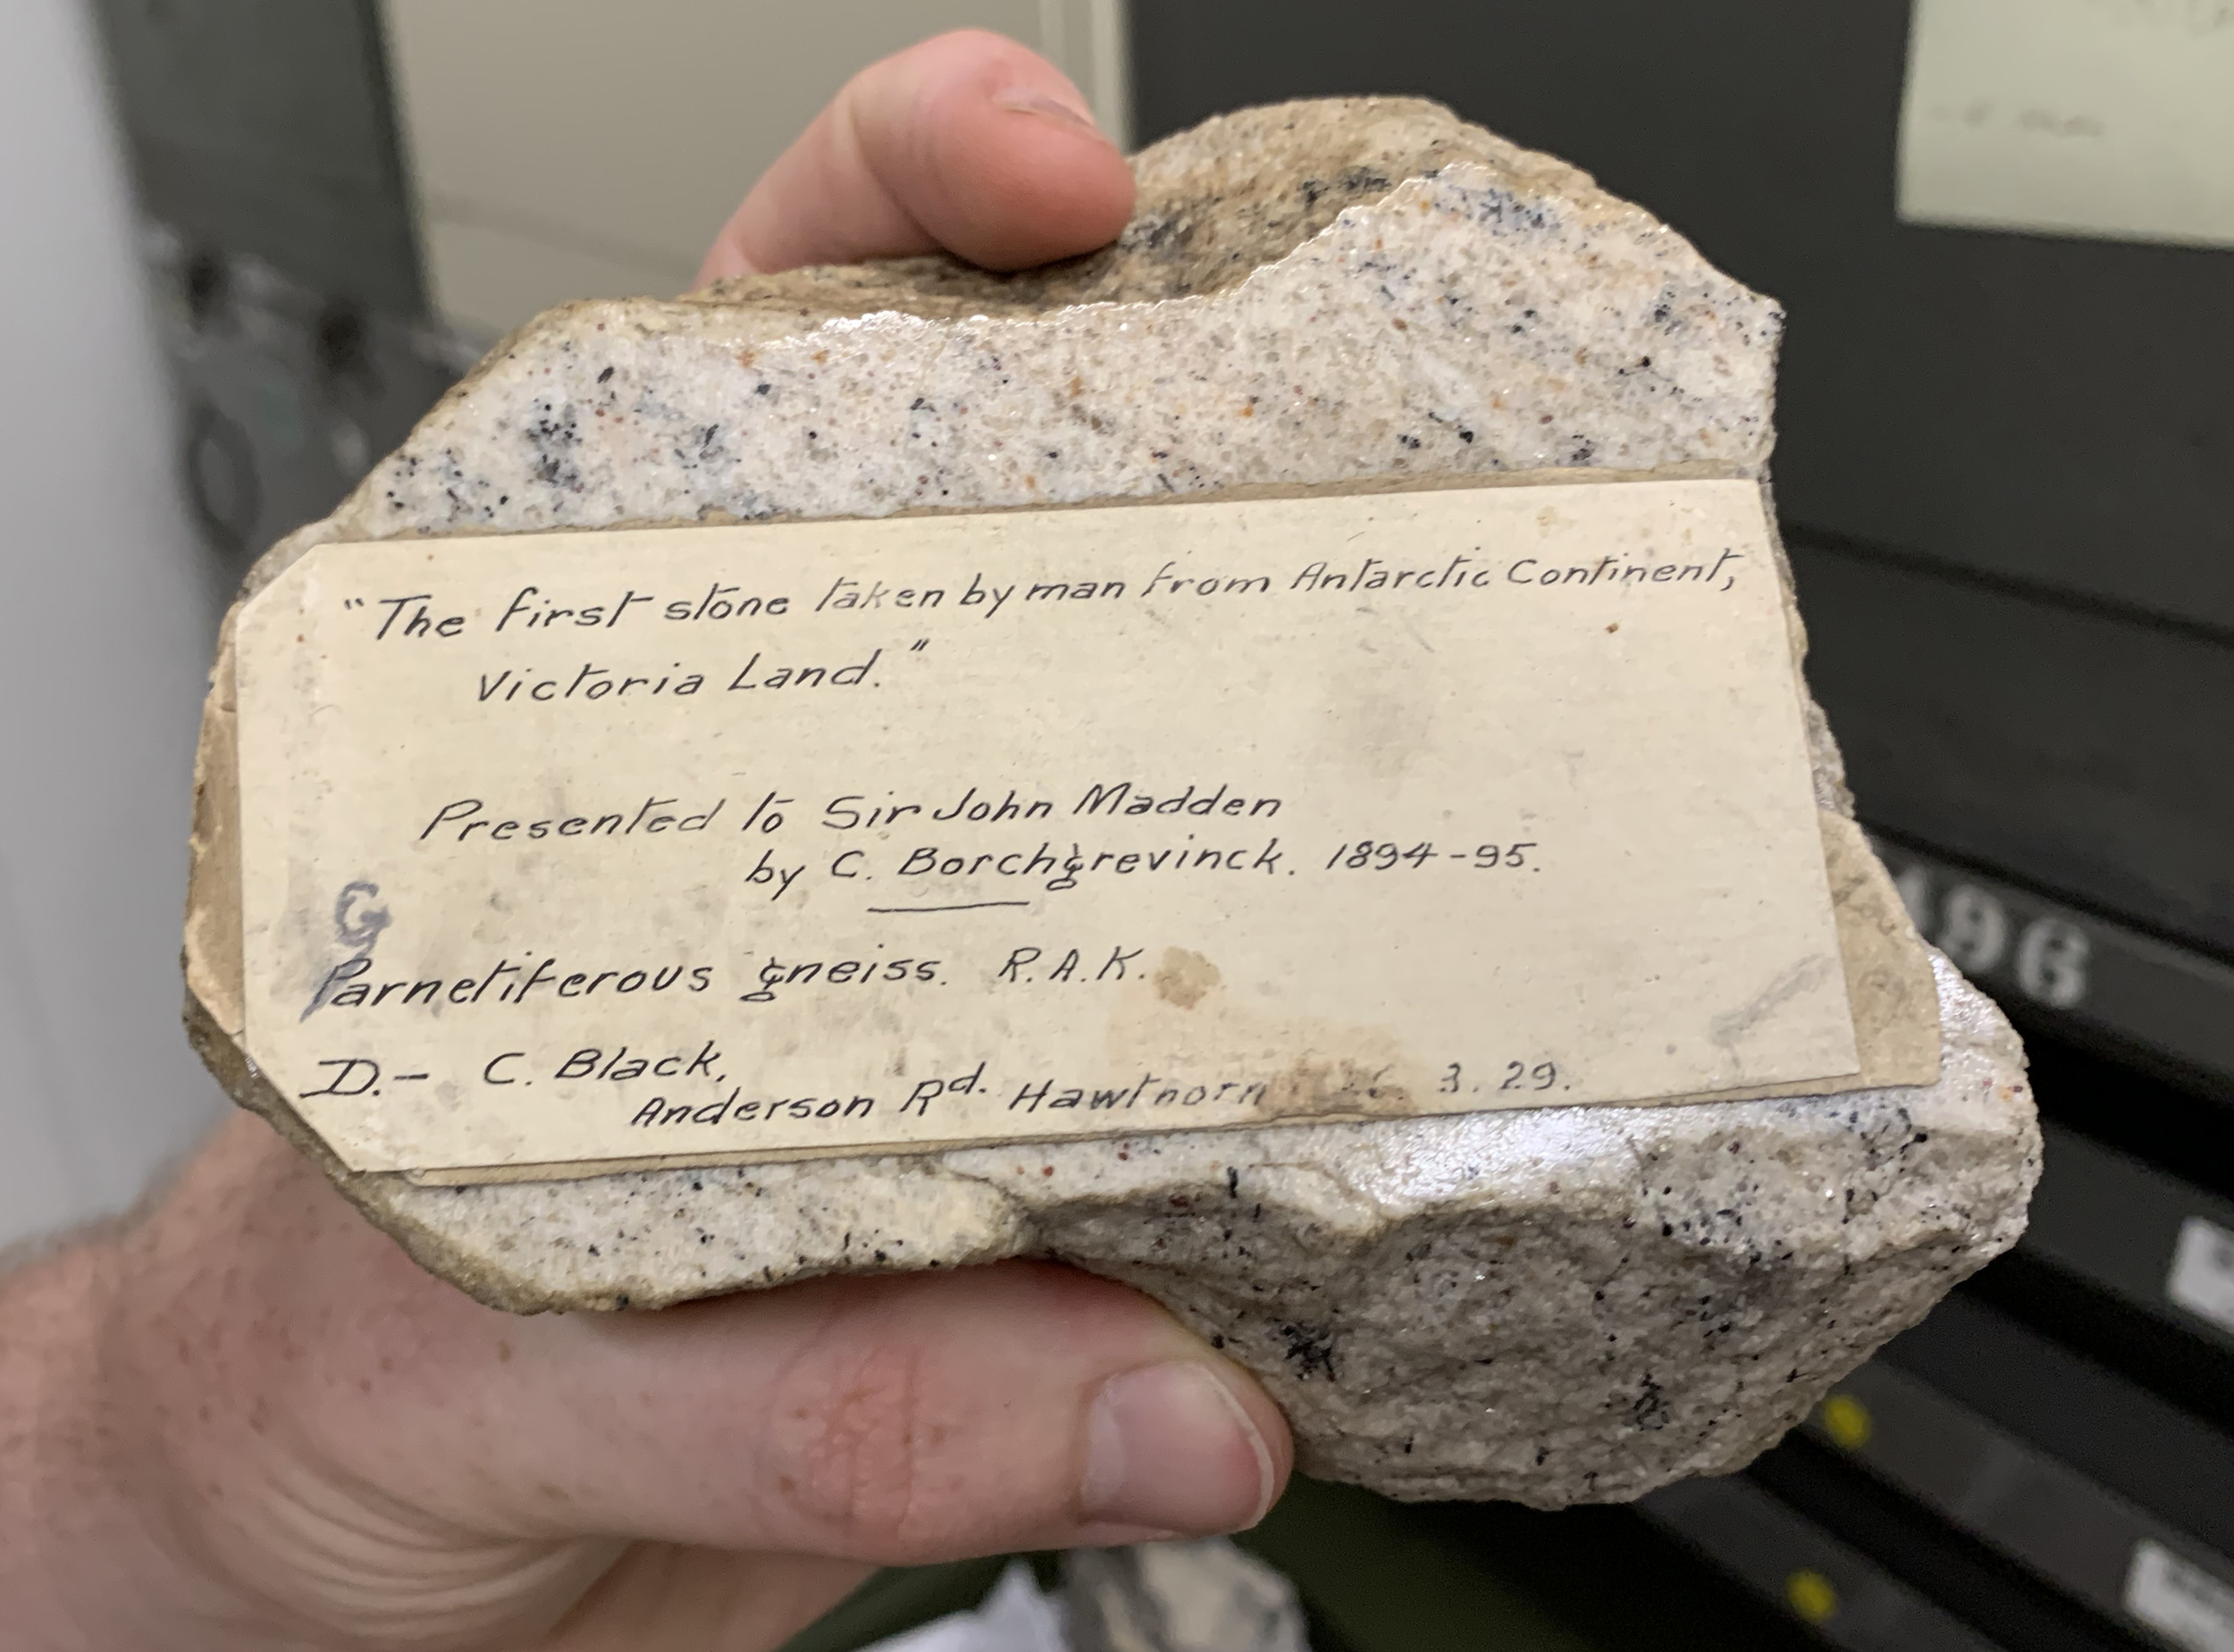 "The first stone taken by man from Antarctic Continent,
Victoria Land."
Presented to Sir John Madden
by C. Borchgrevinck. 1894-95.
G
Parnetiferous gneiss. R.A.K.
D.- C. Black,
Anderson Rd. Hawthorn 3.29.
496